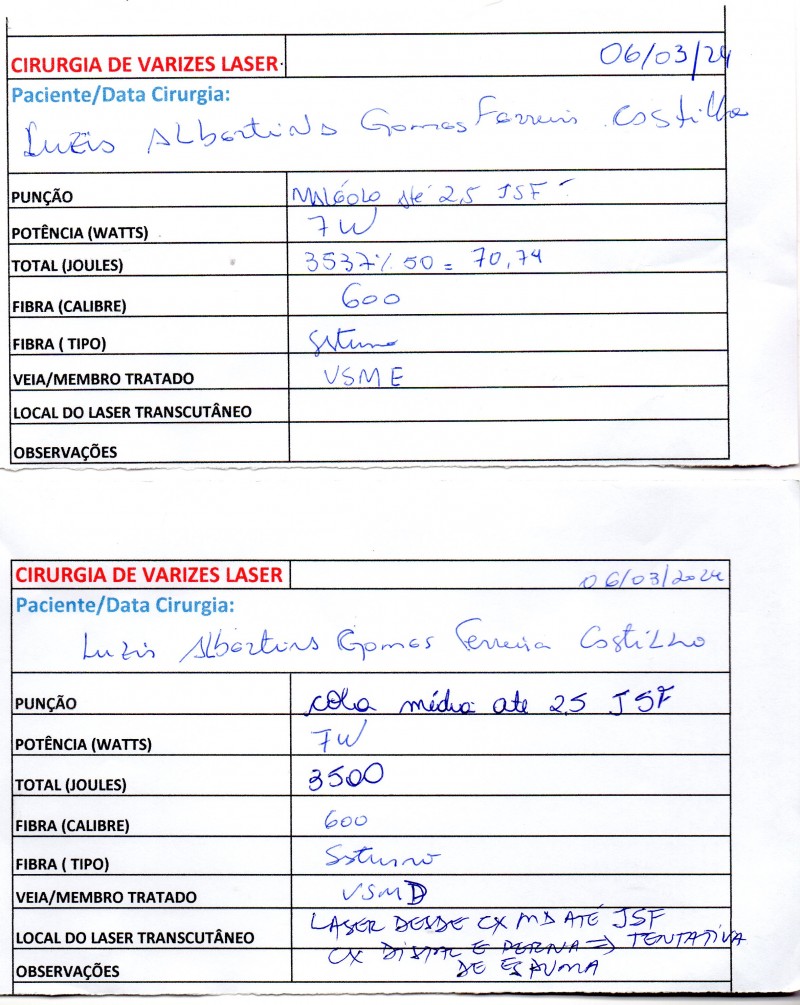 CIRURGIA DE VARIZES LASER 06/03/24
Paciente/Data Cirurgia:
Luzia Albertina Gomes Ferreira Costilho
PUNÇÃO até 2,5 JSF
POTÊNCIA (WATTS) 7W
TOTAL (JOULES) 3537 % 50 = 70,74
FIBRA (CALIBRE) 600
FIBRA ( TIPO)
VEIA/MEMBRO TRATADO VSME
LOCAL DO LASER TRANSCUTÂNEO
OBSERVAÇÕES
CIRURGIA DE VARIZES LASER 06/03/2024
Paciente/Data Cirurgia:
Luzia Albertina Gomes Ferreira Costilho
PUNÇÃO média até 2,5 JSF
POTÊNCIA (WATTS) 7W
TOTAL (JOULES) 3500
FIBRA (CALIBRE) 600
FIBRA ( TIPO)
VEIA/MEMBRO TRATADO VSMD
LASER DESDE CX MD ATÉ JSF
LOCAL DO LASER TRANSCUTÂNEO CX DISTAL E PERNA => TENTATIVA
OBSERVAÇÕES DE ESPUMA